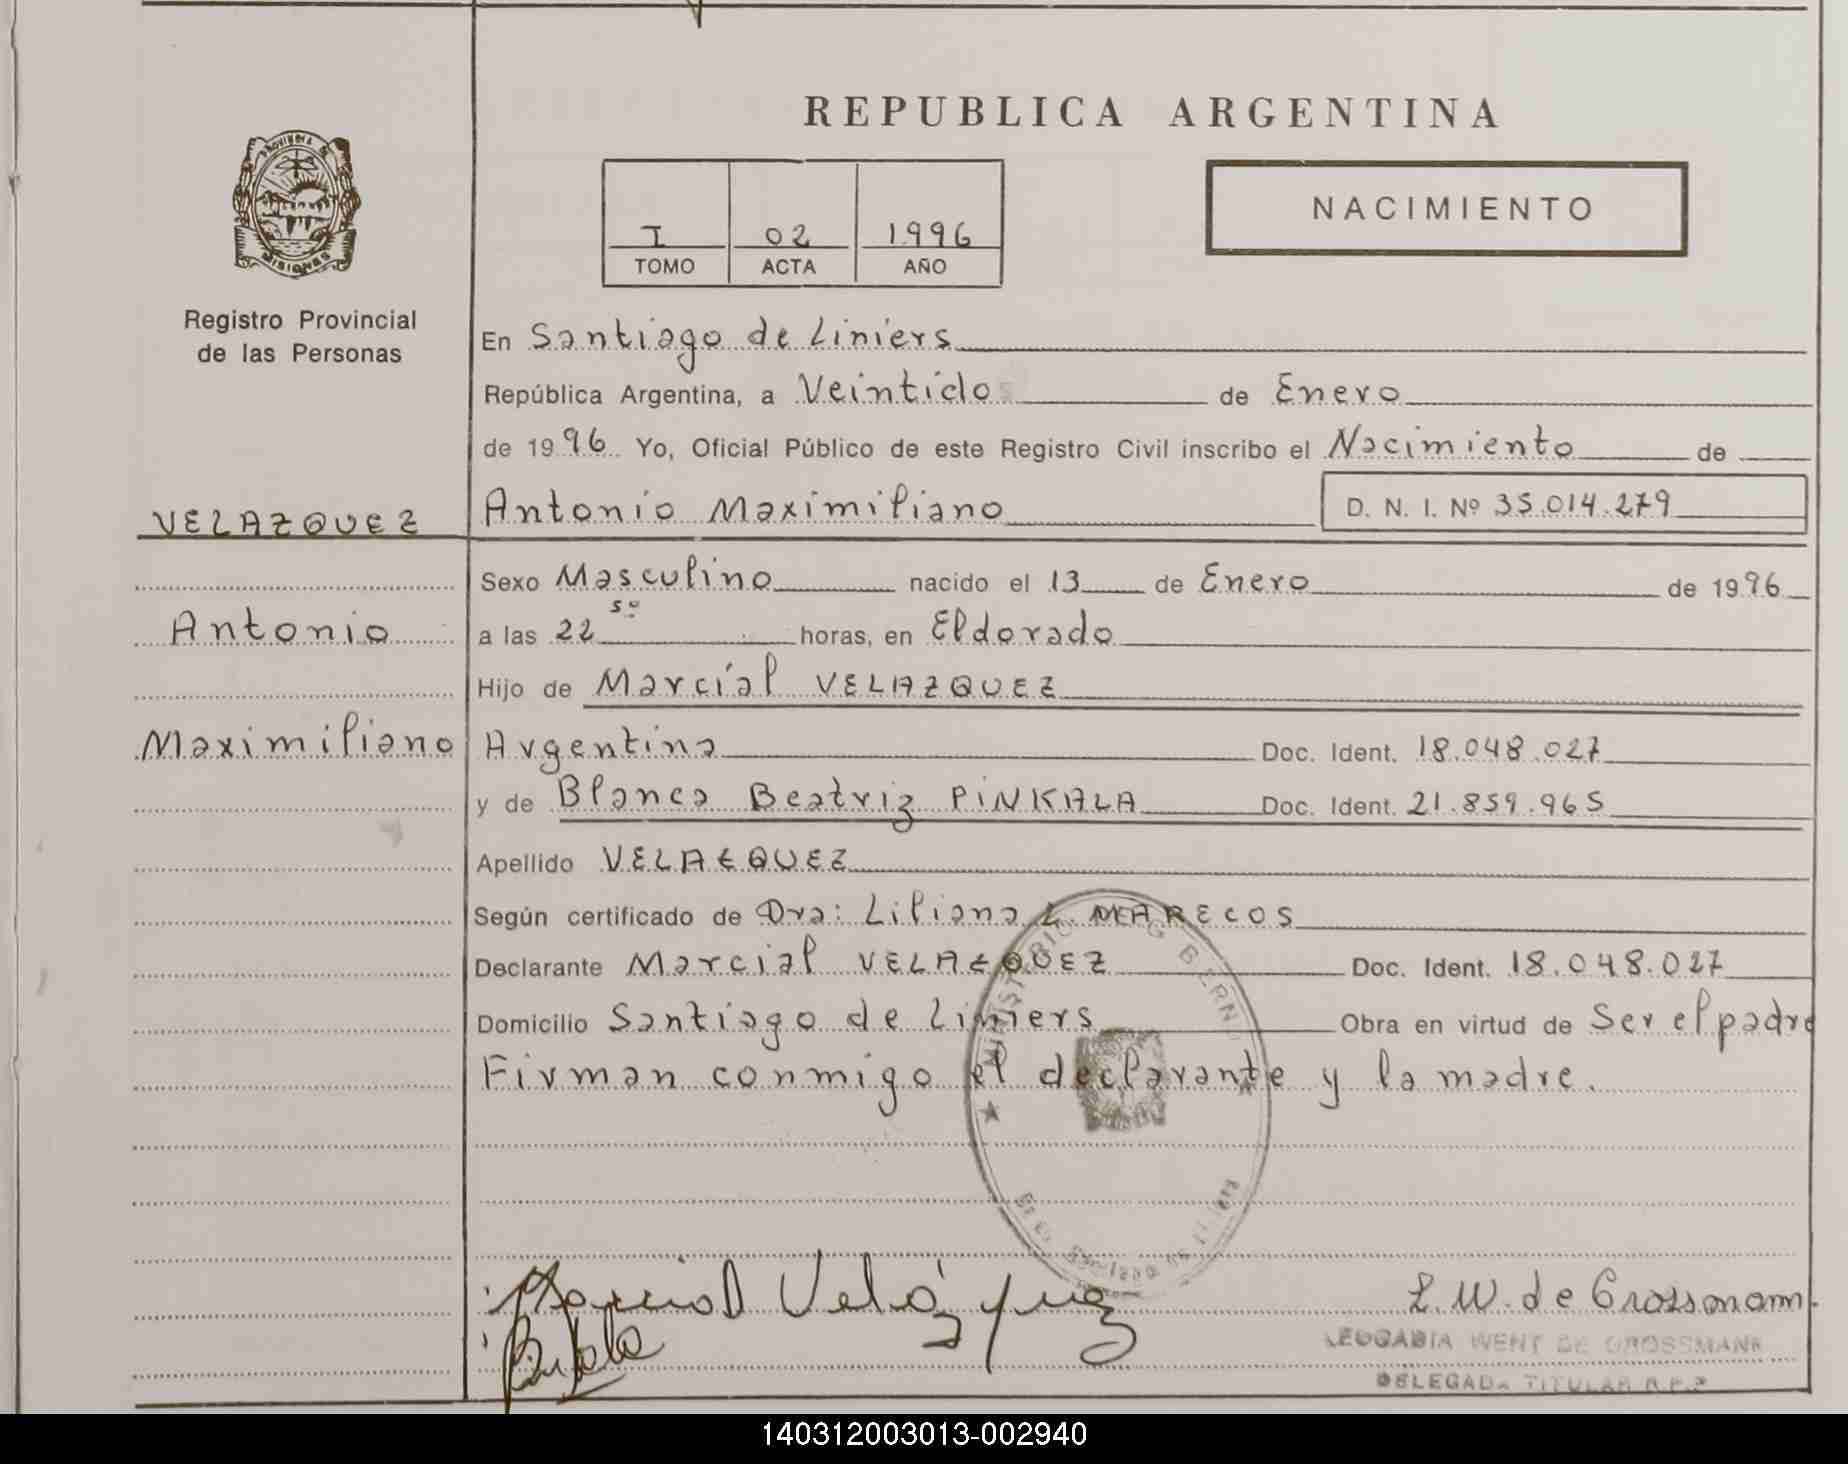 REPUBLICA ARGENTINA
PROVINCIA DE
MISIONES
Registro Provincial
de las Personas
I 02 1996
TOMO ACTA AÑO
NACIMIENTO
En Santiago de Liniers
República Argentina, a Veintidos de Enero
de 1996. Yo, Oficial Público de este Registro Civil inscribo el Nacimiento de
VELAZQUEZ
Antonio Maximiliano D. N. I. Nº 35.014.279
Sexo Masculino nacido el 13 de Enero de 1996
Antonio
a las 22 50 horas, en Eldorado
Hijo de Marcial VELAZQUEZ
Maximiliano
Argentina Doc. Ident. 18.048.027
y de Blanca Beatriz PINKALA Doc. Ident. 21.859.965
Apellido VELAZQUEZ
Según certificado de Dra: Liliana L. MARECOS
Declarante Marcial VELAZQUEZ Doc. Ident. 18.048.027
Domicilio Santiago de Liniers Obra en virtud de Ser el padre
Firman conmigo el declarante y la madre.
MINISTERIO
Marcial Velázquez
L. W. de Grossmann
LEOCADIA WENT DE GROSSMANN
DELEGADA TITULAR R.P.P
140312003013-002940